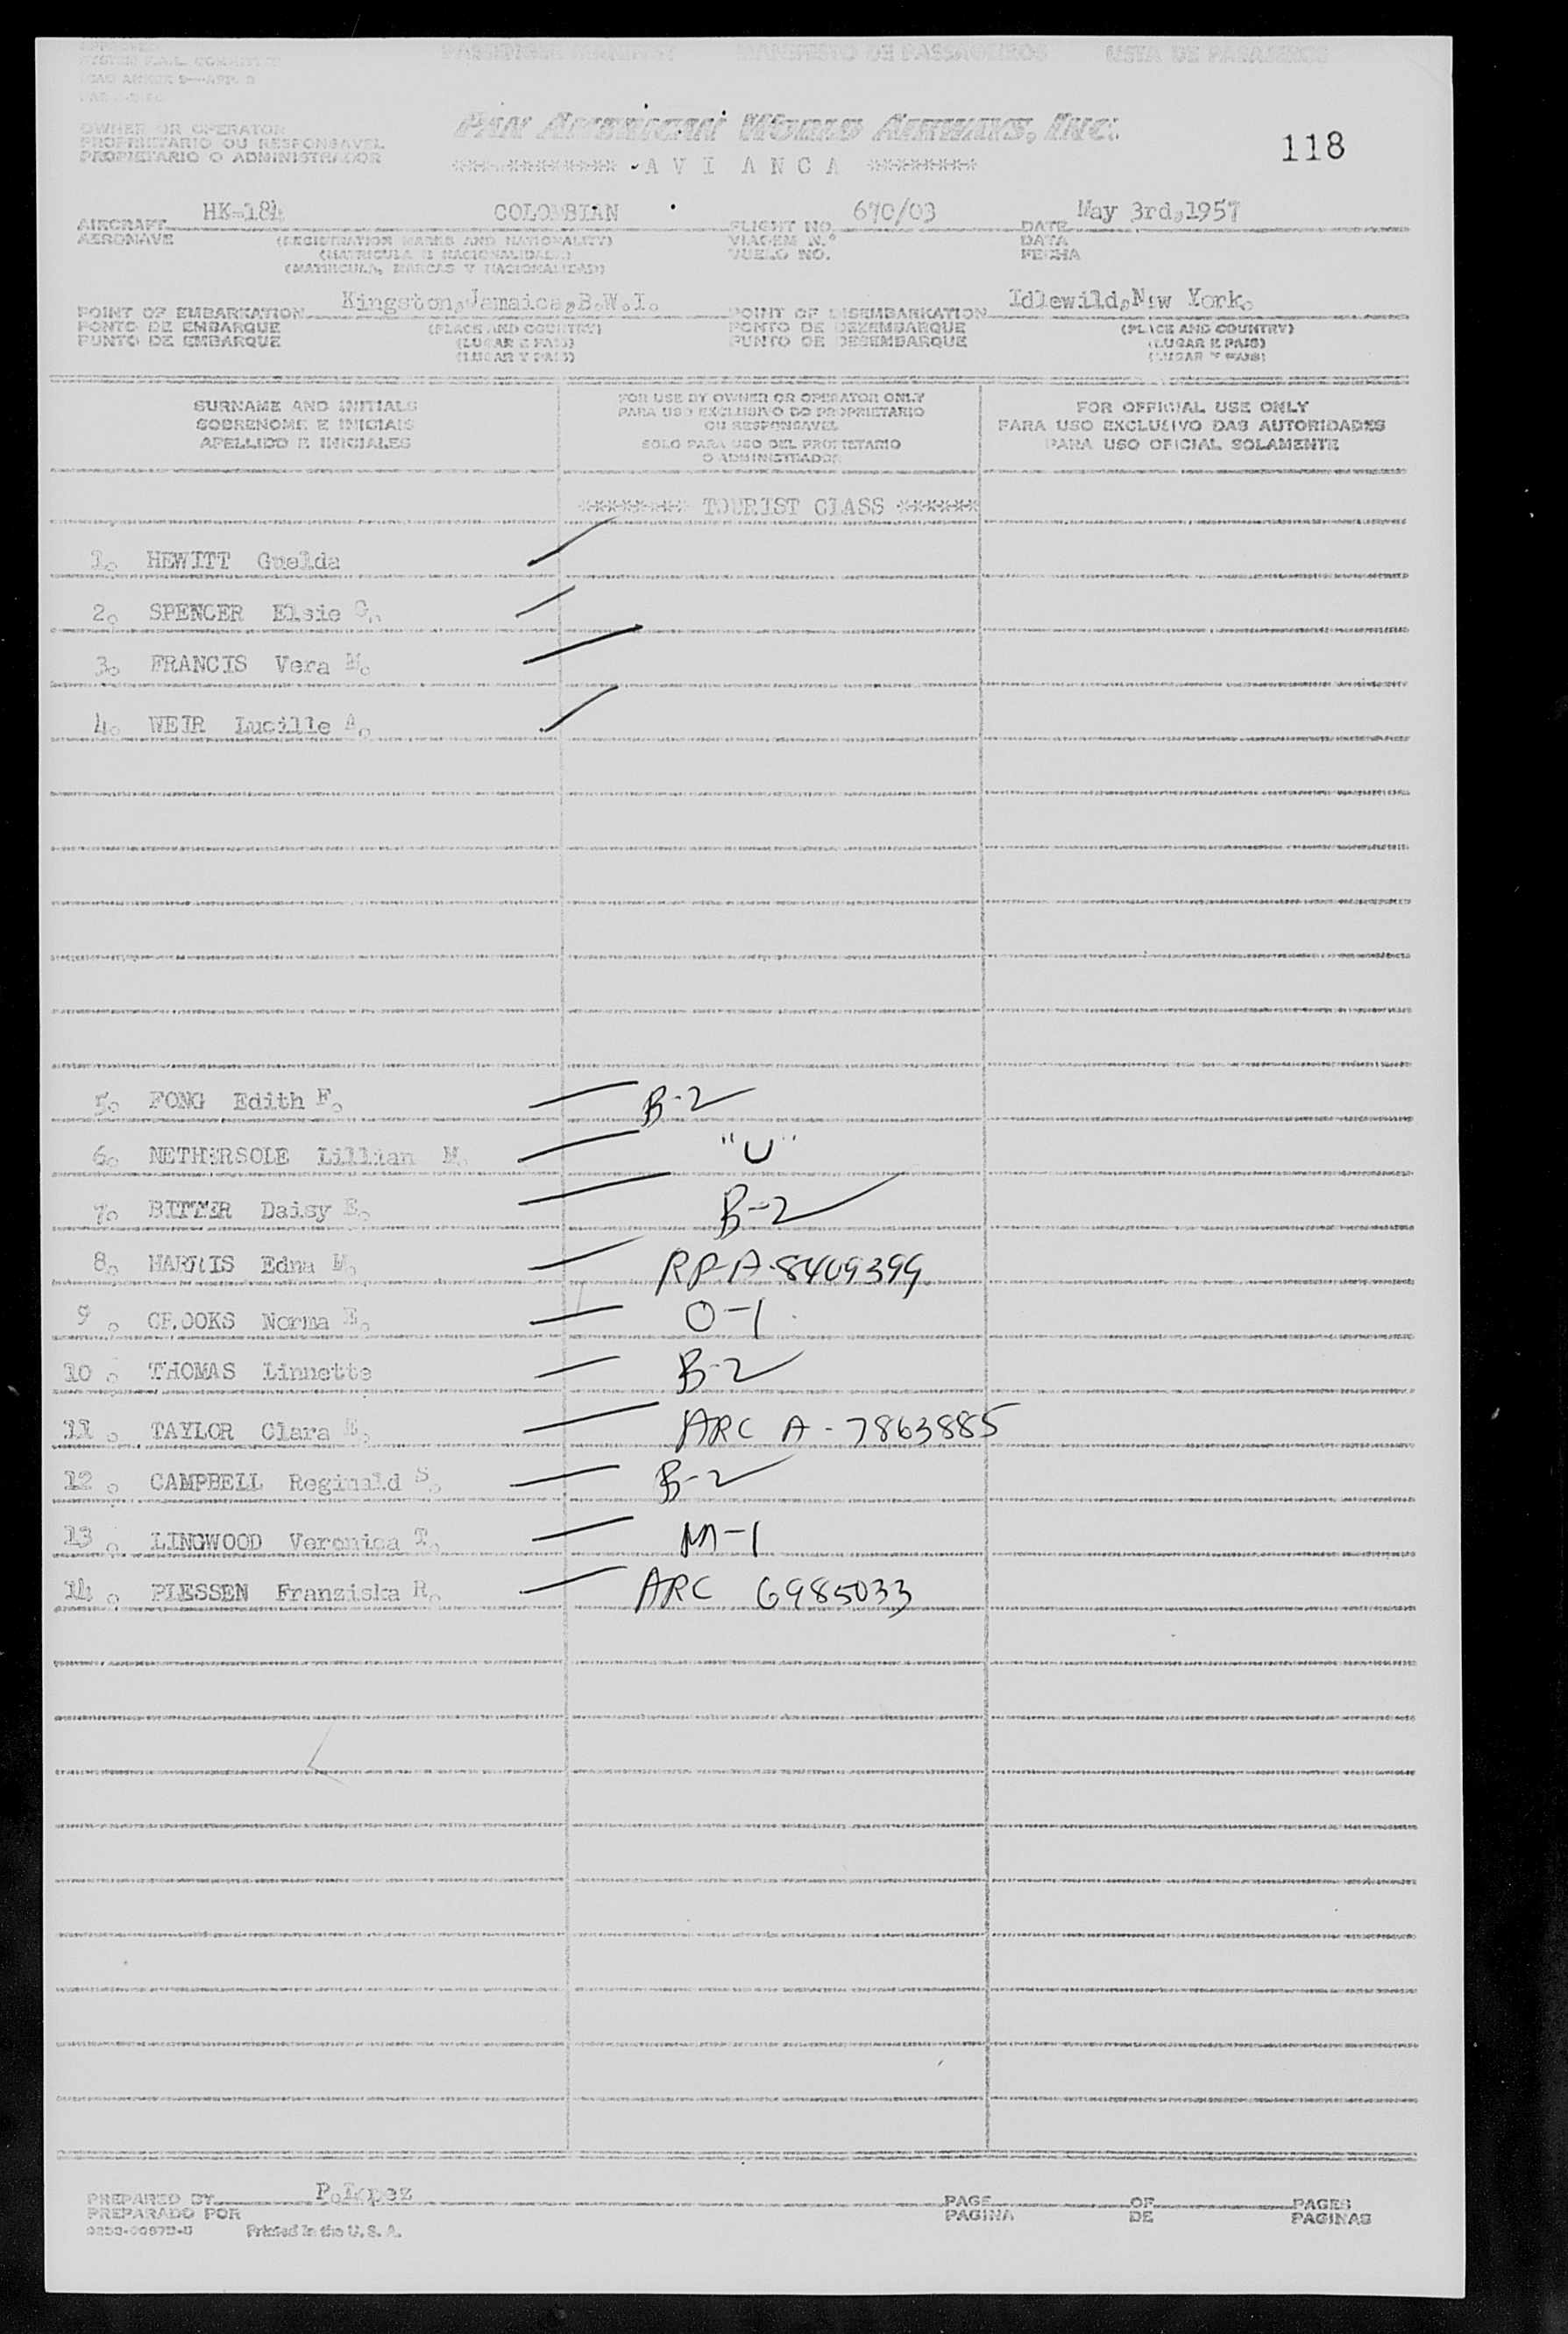 PASSENGER MANIFEST MANIFESTO DE PASSAGEIROS LISTA DE PASAJEROS
OWNER OR OPERATOR
PROPRIETARIO OU RESPONSAVEL
PROPIETARIO O ADMINISTRADOR
PAN AMERICAN WORLD AIRWAYS, INC.
AVIANCA ********
118
AIRCRAFT HK-184 COLOMBIAN FLIGHT NO. 670/03 DATE May 3rd,1957
AERONAVE (REGISTRATION MARKS AND NATIONALITY) VIAGEM N.º DATA
(MATRICULA E NACIONALIDADE) VUELO NO. FECHA
(MATRICULA, MARCAS Y NACIONALIDAD)
POINT OF EMBARKATION Kingston,Jamaica,B.W.I. POINT OF DISEMBARKATION Idlewild,New York.
PONTO DE EMBARQUE (PLACE AND COUNTRY) PONTO DE DEZEMBARQUE (PLACE AND COUNTRY)
PUNTO DE EMBARQUE (LUGAR E PAIS) PUNTO DE DESEMBARQUE (LUGAR E PAIS)
(LUGAR Y PAIS) (LUGAR Y PAIS)
SURNAME AND INITIALS
SOBRENOME E INICIAIS
APELLIDO E INICIALES
FOR USE BY OWNER OR OPERATOR ONLY
PARA USO EXCLUSIVO DO PROPRIETARIO
OU RESPONSAVEL
SOLO PARA USO DEL PROPIETARIO
O ADMINISTRADOR
FOR OFFICIAL USE ONLY
PARA USO EXCLUSIVO DAS AUTORIDADES
PARA USO OFICIAL SOLAMENTE
******** TOURIST CLASS ******
1. HEWITT Guelda
2. SPENCER Elsie C.
3. FRANCIS Vera M.
4. WEIR Lucille A.
5. FONG Edith F. B-2
6. NETHERSOLE Lillian M. "U"
7. BITTER Daisy E. B-2
8. HARRIS Edna M. RP-A-8409399
9. CROOKS Norma E. O-1
10. THOMAS Linnette B-2
11. TAYLOR Clara E. ARC A-7863885
12. CAMPBELL Reginald S. B-2
13. LINGWOOD Veronica T. M-1
14. PLESSEN Franziska R. ARC 6985033
PREPARED BY P.Lopez PAGE OF PAGES
PREPARADO POR PAGINA DE PAGINAS
Printed in the U. S. A.